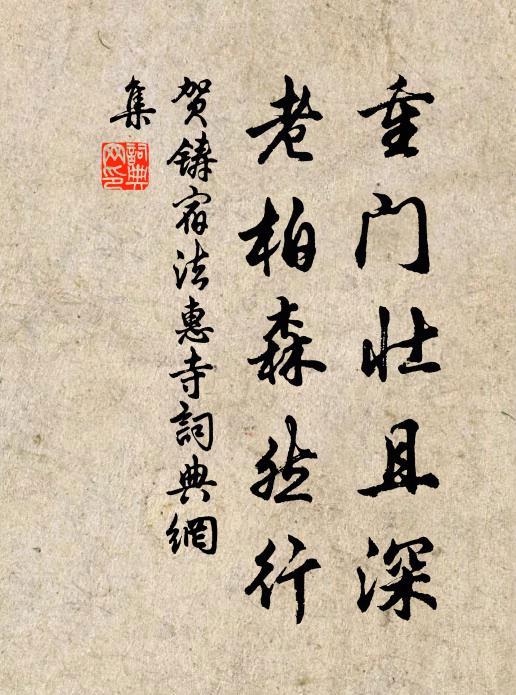 重门壮且深
老柏森然行
贺铸宿法惠寺詞典網
集
詞典
网印